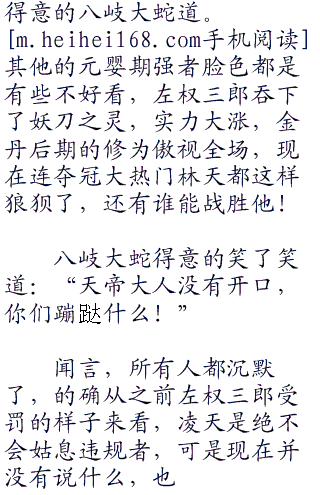 得意的八岐大蛇道。
[m.heihei168.com手机阅读]
其他的元婴期强者脸色都是
有些不好看，左权三郎吞下
了妖刀之灵，实力大涨，金
丹后期的修为傲视全场，现
在连夺冠大热门林天都这样
狼狈了，还有谁能战胜他！
八岐大蛇得意的笑了笑
道：“天帝大人没有开口，
你们蹦跶什么！”
闻言，所有人都沉默
了，的确从之前左权三郎受
罚的样子来看，凌天是绝不
会姑息违规者，可是现在并
没有说什么，也